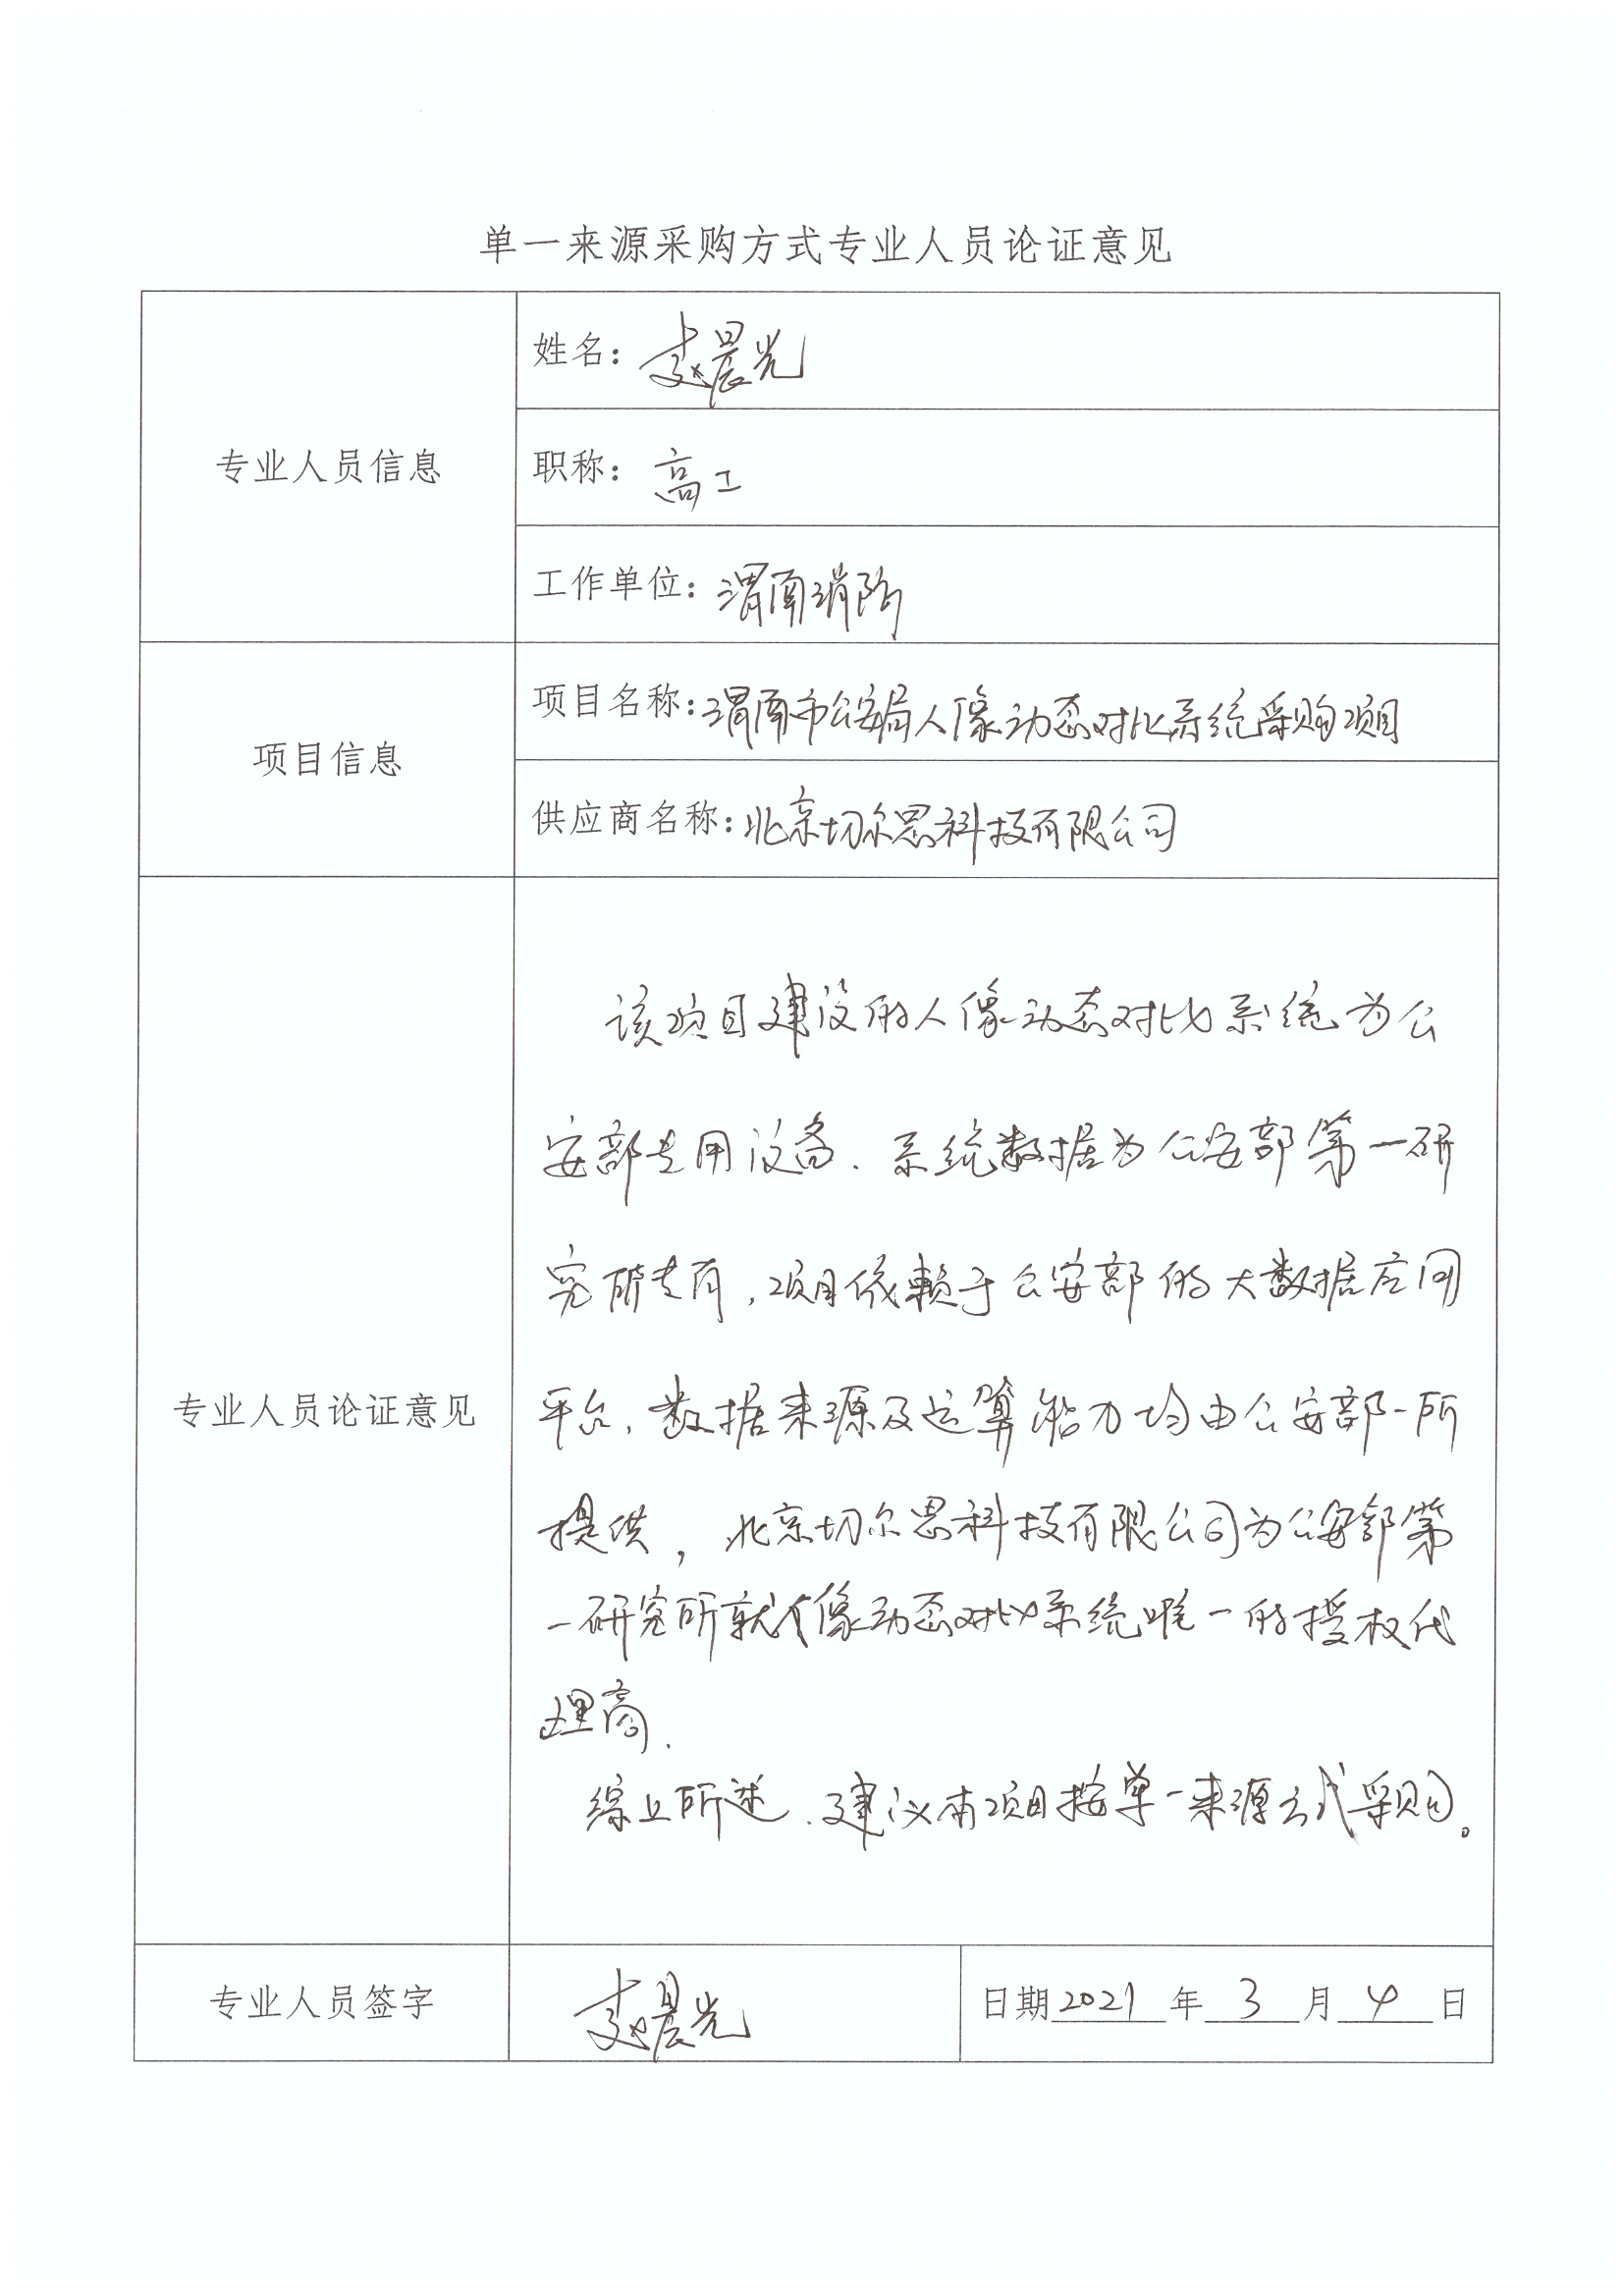 单一来源采购方式专业人员论证意见
专业人员信息
姓名：赵晨光
职称：高工
工作单位：渭南消防
项目信息
项目名称：渭南市公安局人像动态对比系统采购项目
供应商名称：北京切尔思科技有限公司
专业人员论证意见
该项目建设的人像动态对比系统为公
安部专用设备．系统数据为公安部第一研
究所专有，项目依赖于公安部的大数据应用
平台，数据来源及运算能力均由公安部一所
提供，北京切尔思科技有限公司为公安部第
一研究所就人像动态对比系统唯一的授权代
理商．
综上所述．建议本项目按单一来源方式采购。
专业人员签字
赵晨光
日期2021年3月4日